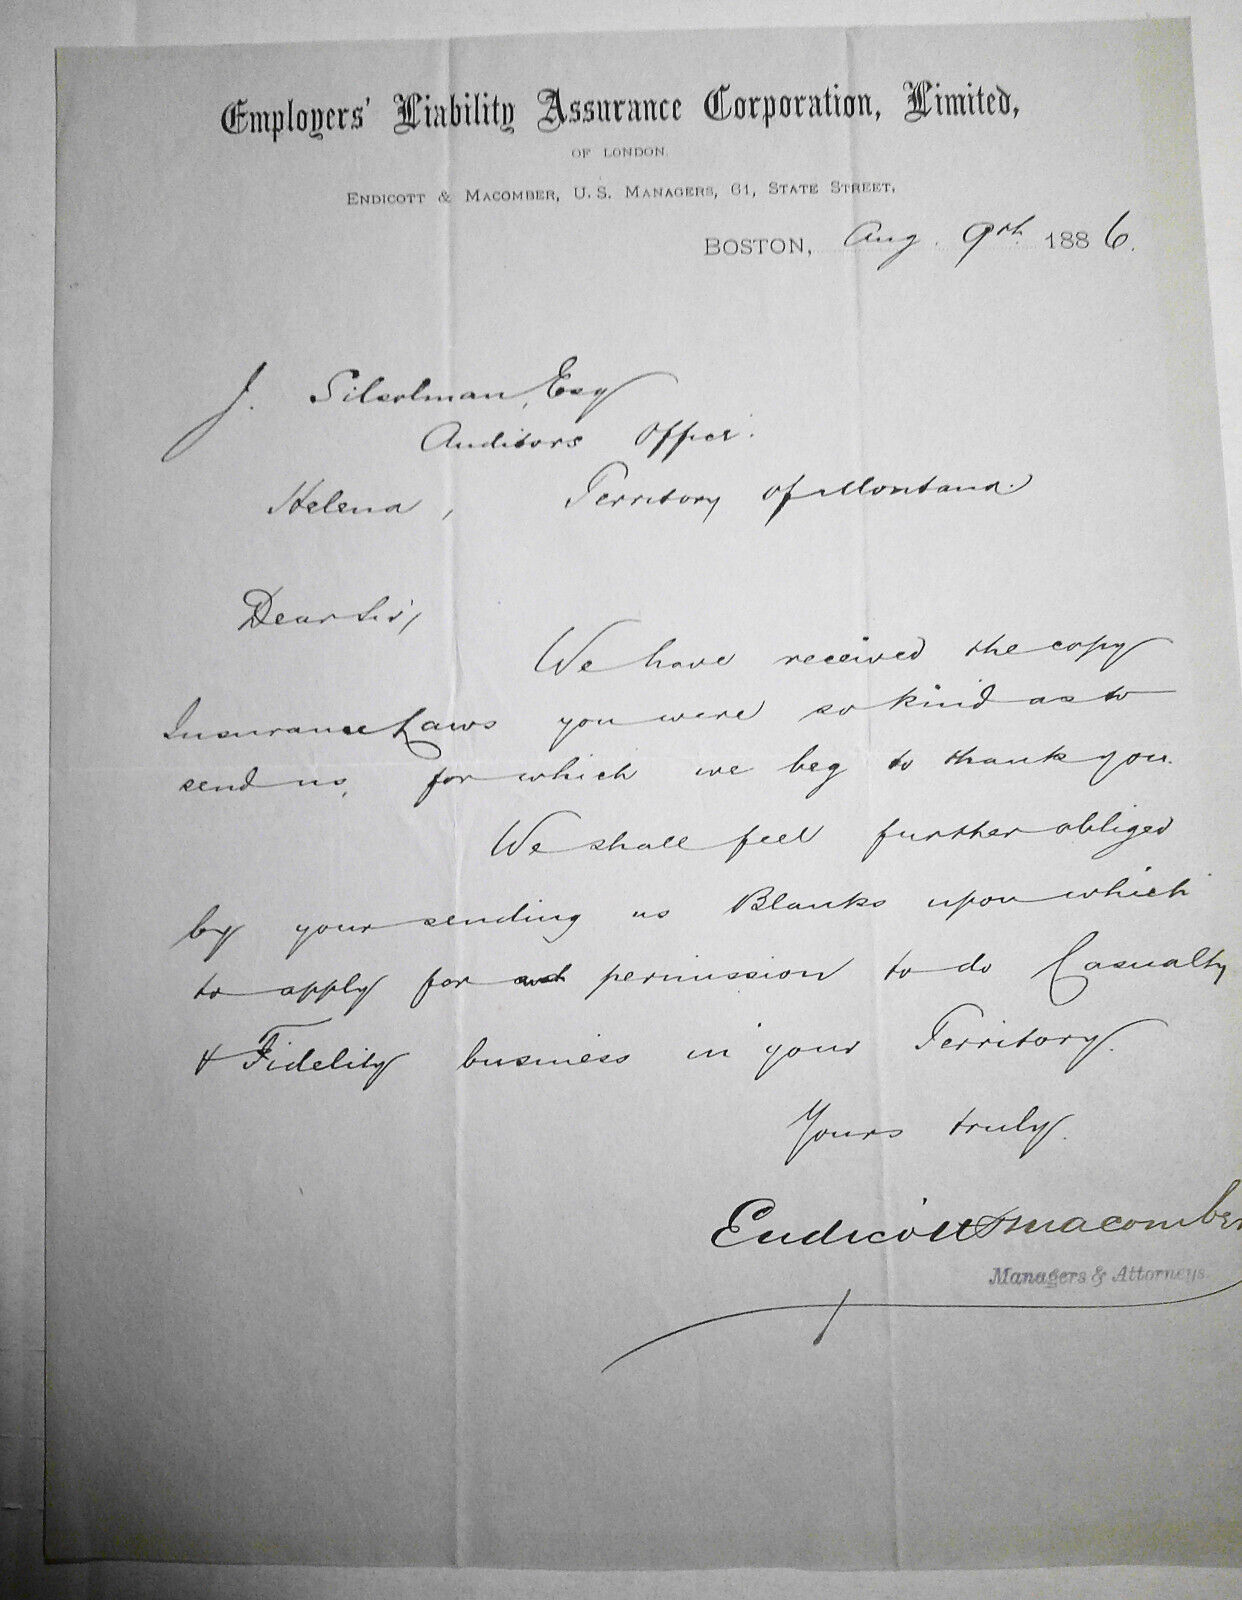 Employers' Liability Assurance Corporation, Limited,
OF LONDON.
ENDICOTT & MACOMBER, U. S. MANAGERS, 61, STATE STREET,
BOSTON, Aug. 9th 1886.
J. Silsolman, Esq
Auditors Office.
Helena, Territory of Montana.
Dear Sir,
We have received the copy
Insurance Laws you were so kind as to
send us, for which we beg to thank you.
We shall feel further obliged
by your sending us Blanks upon which
to apply for permission to do Casualty
& Fidelity business in your Territory.
Yours truly.
Endicott & Macomber
Managers & Attorneys